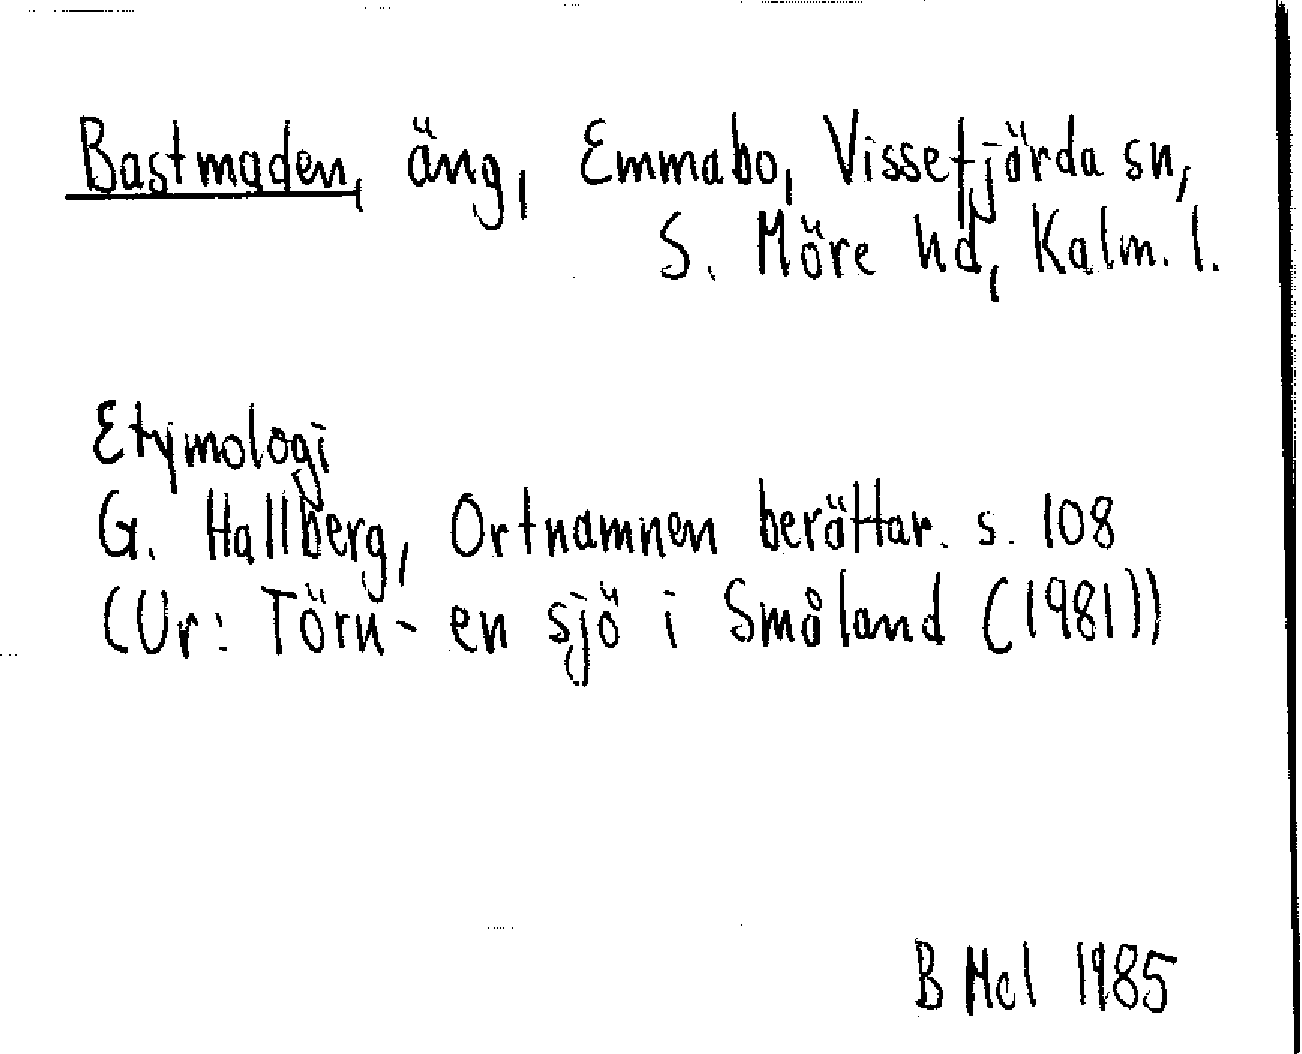 Bastmaden, äng, Emmabo, Vissefjärda sn,
S. Möre hd, Kalm. l.
Etymologi
G. Hallberg, Ortnamnen berättar. s. 108
(Ur: Törn - en sjö i Småland (1981))
B Mcl 1985